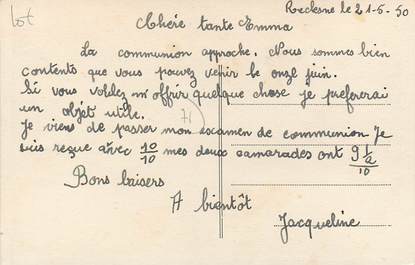 lot
Reclesne le 21-5-50
Chère tante Emma
La communion approche. Nous sommes bien
contents que vous pouvez venir le onze juin.
Si vous voulez m'offrir quelque chose je préfèrerai
un objet utile.
Je viens de passer mon escamen de communion Je
suis reçue avec 10/10 mes deux camarades ont 9 1/2/10
Bons baisers
A bientôt
Jacqueline